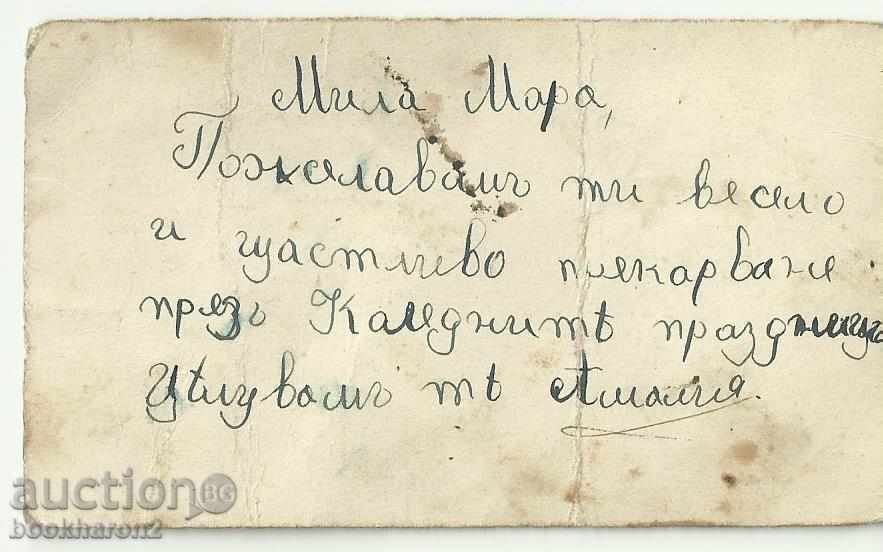 Мила Мара,
Пожелавамъ ти весело
и щастливо прекарване
презъ Каледнитѣ праздници
Цѣлувамъ тѣ Амалия.
auction BG
bookharon2